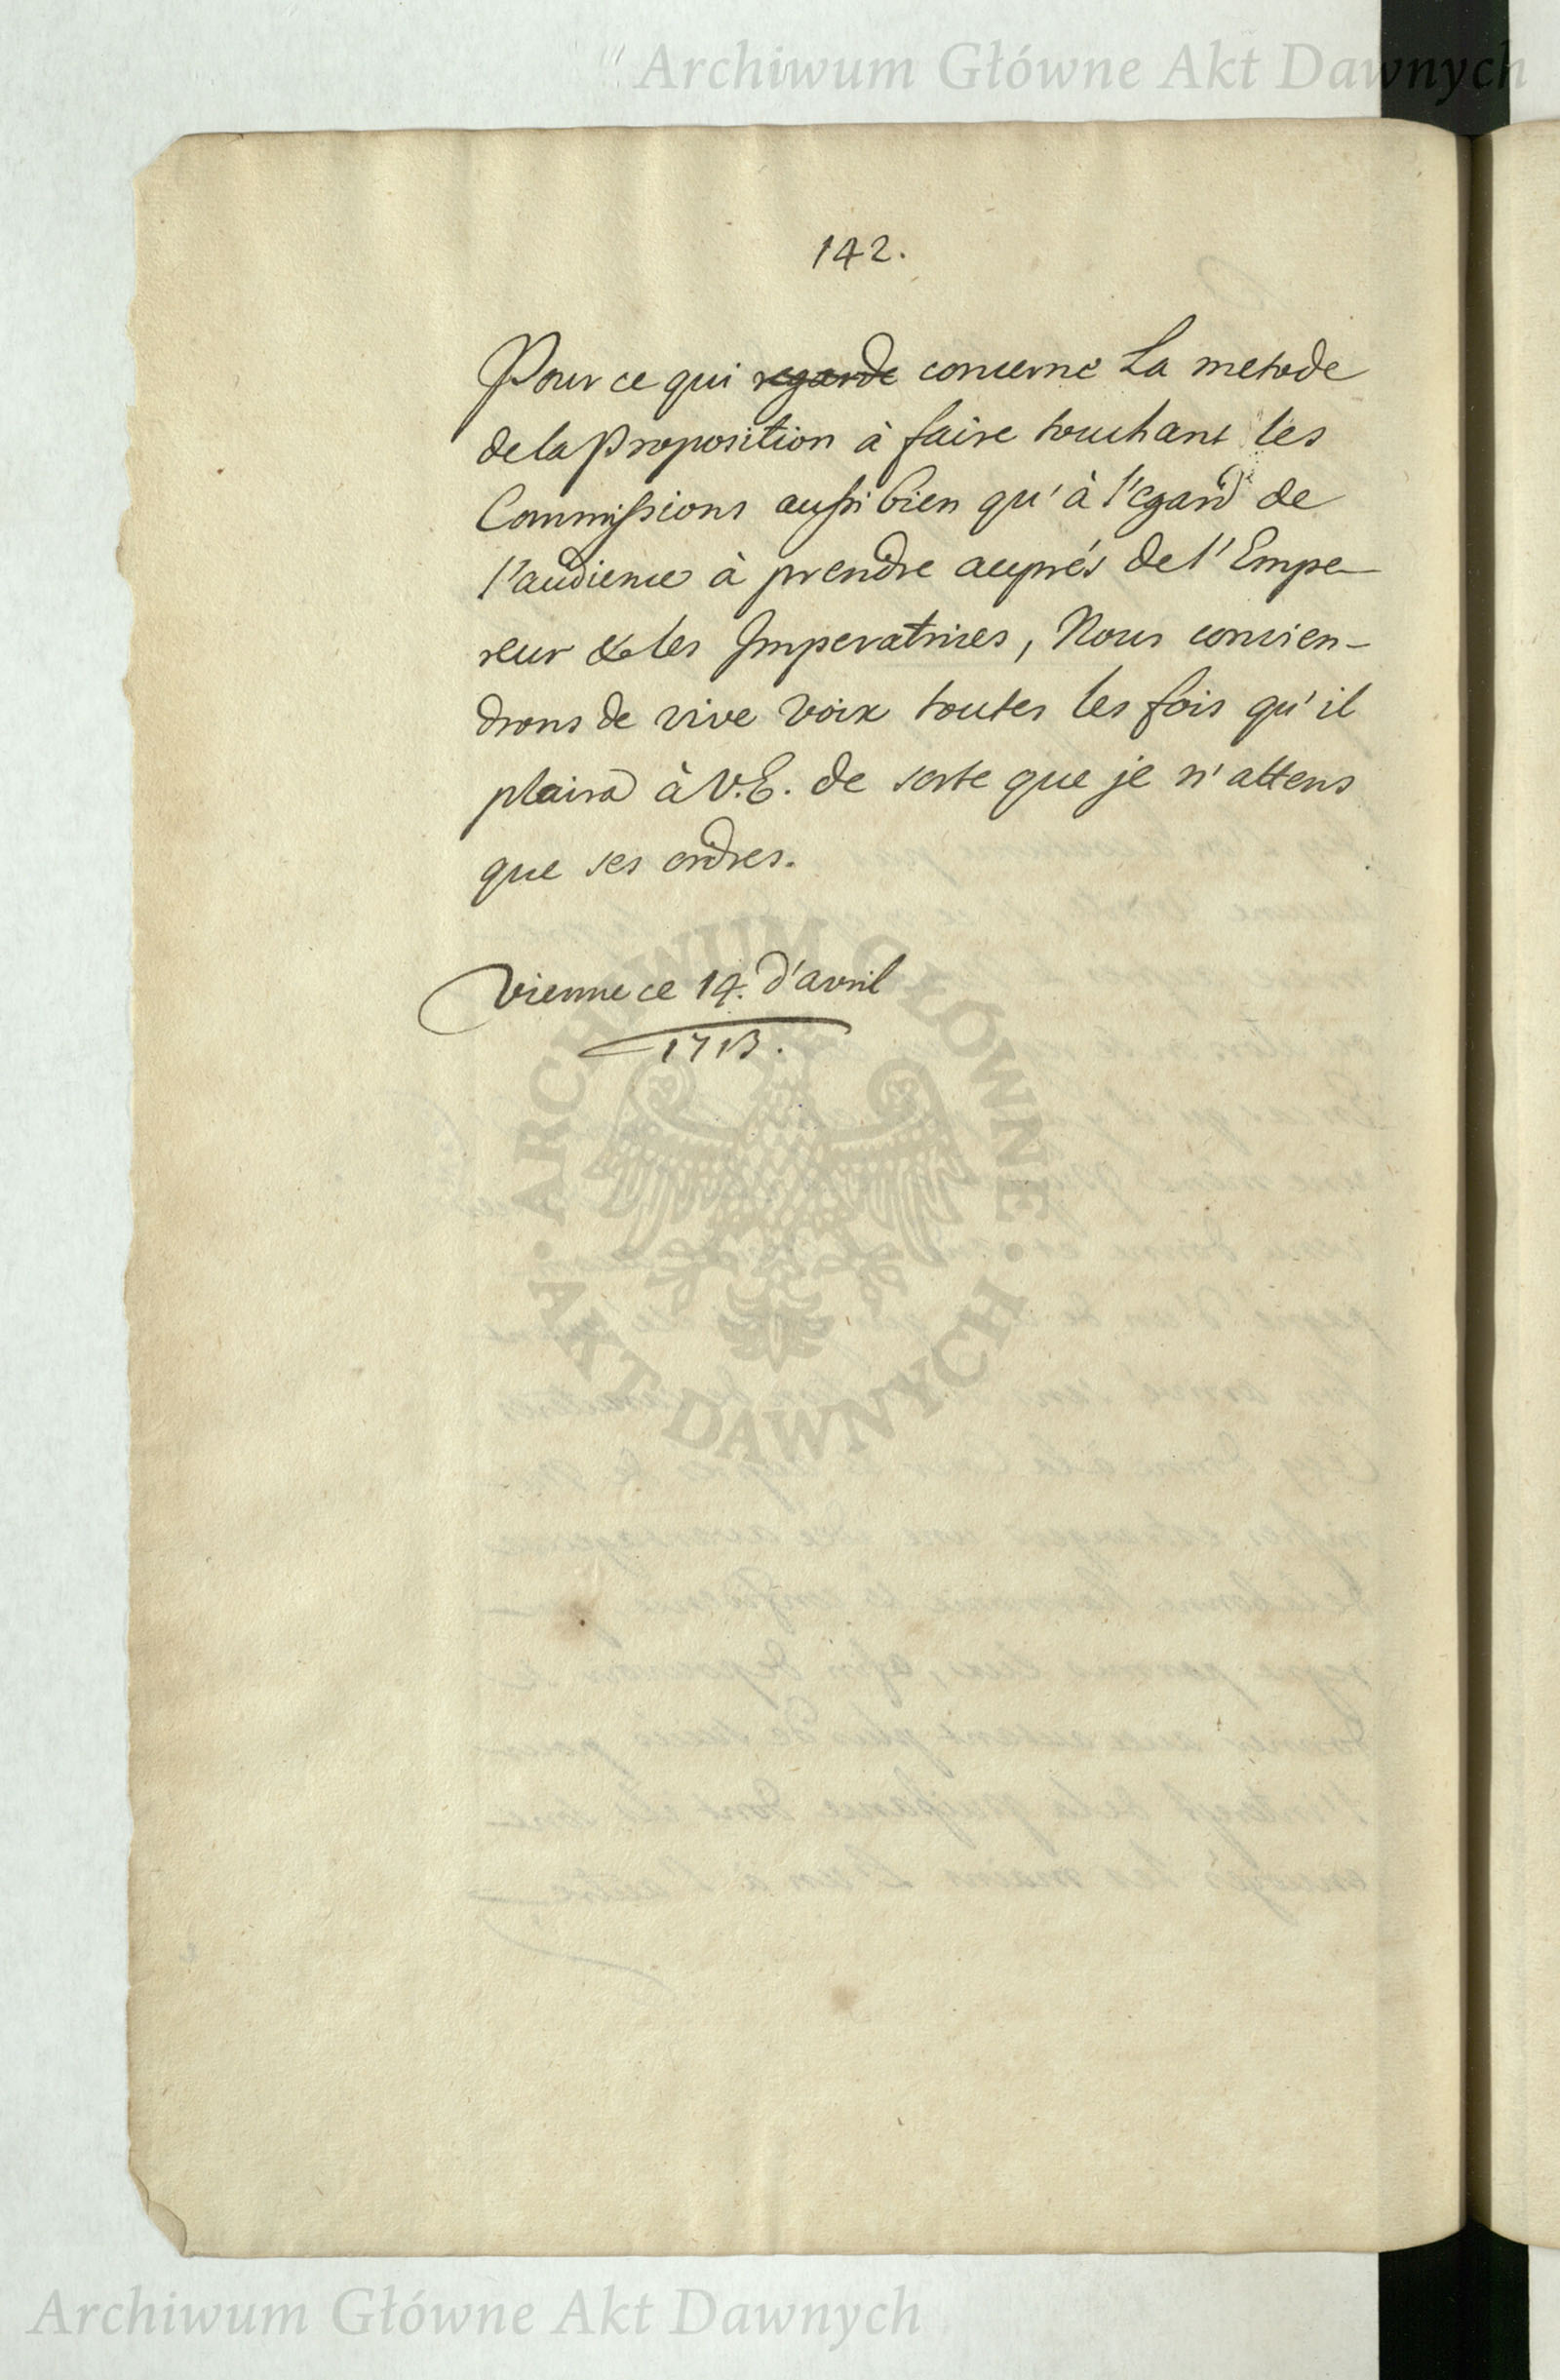 Archiwum Główne Akt Dawnych
142.
Pour ce qui regarde concerne La metode
de la Proposition à faire touchant les
Commissions aussi bien qu'à l'egard de
l'audience à prendre auprés de l'Empe-
reur & les Imperatrices, Nous convien-
drons de vive voix toutes les fois qu'il
plaira à V.E. de sorte que je n'attens
que ses ordres.
Vienne ce 14. d'avril
1713.
ARCHIWUM GŁÓWNE
AKT DAWNYCH
Archiwum Główne Akt Dawnych